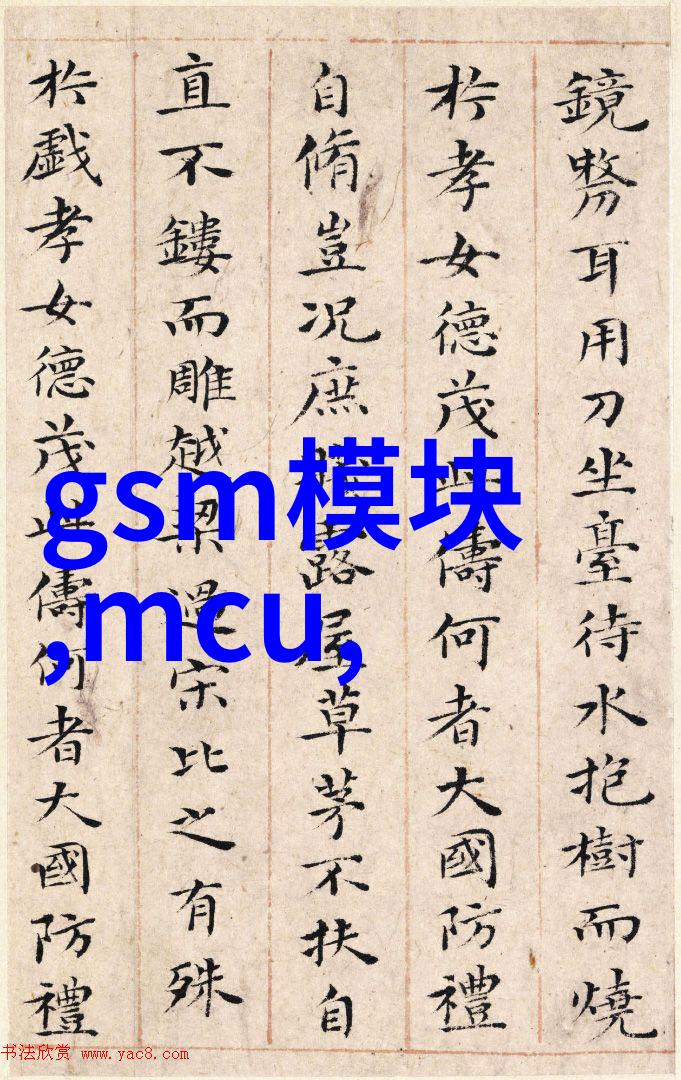 鏡剺耳用刀坐臺待水抱樹而燒
於孝女德茂此儔何者大國防禮
自脩豈况庶賤露屋草茅不扶自
直不鏤而雕越梁過宋比之有殊
於戲孝女德茂此儔何者大國防禮
gsm模块
,mcu,
书法欣赏 www.yac8.com